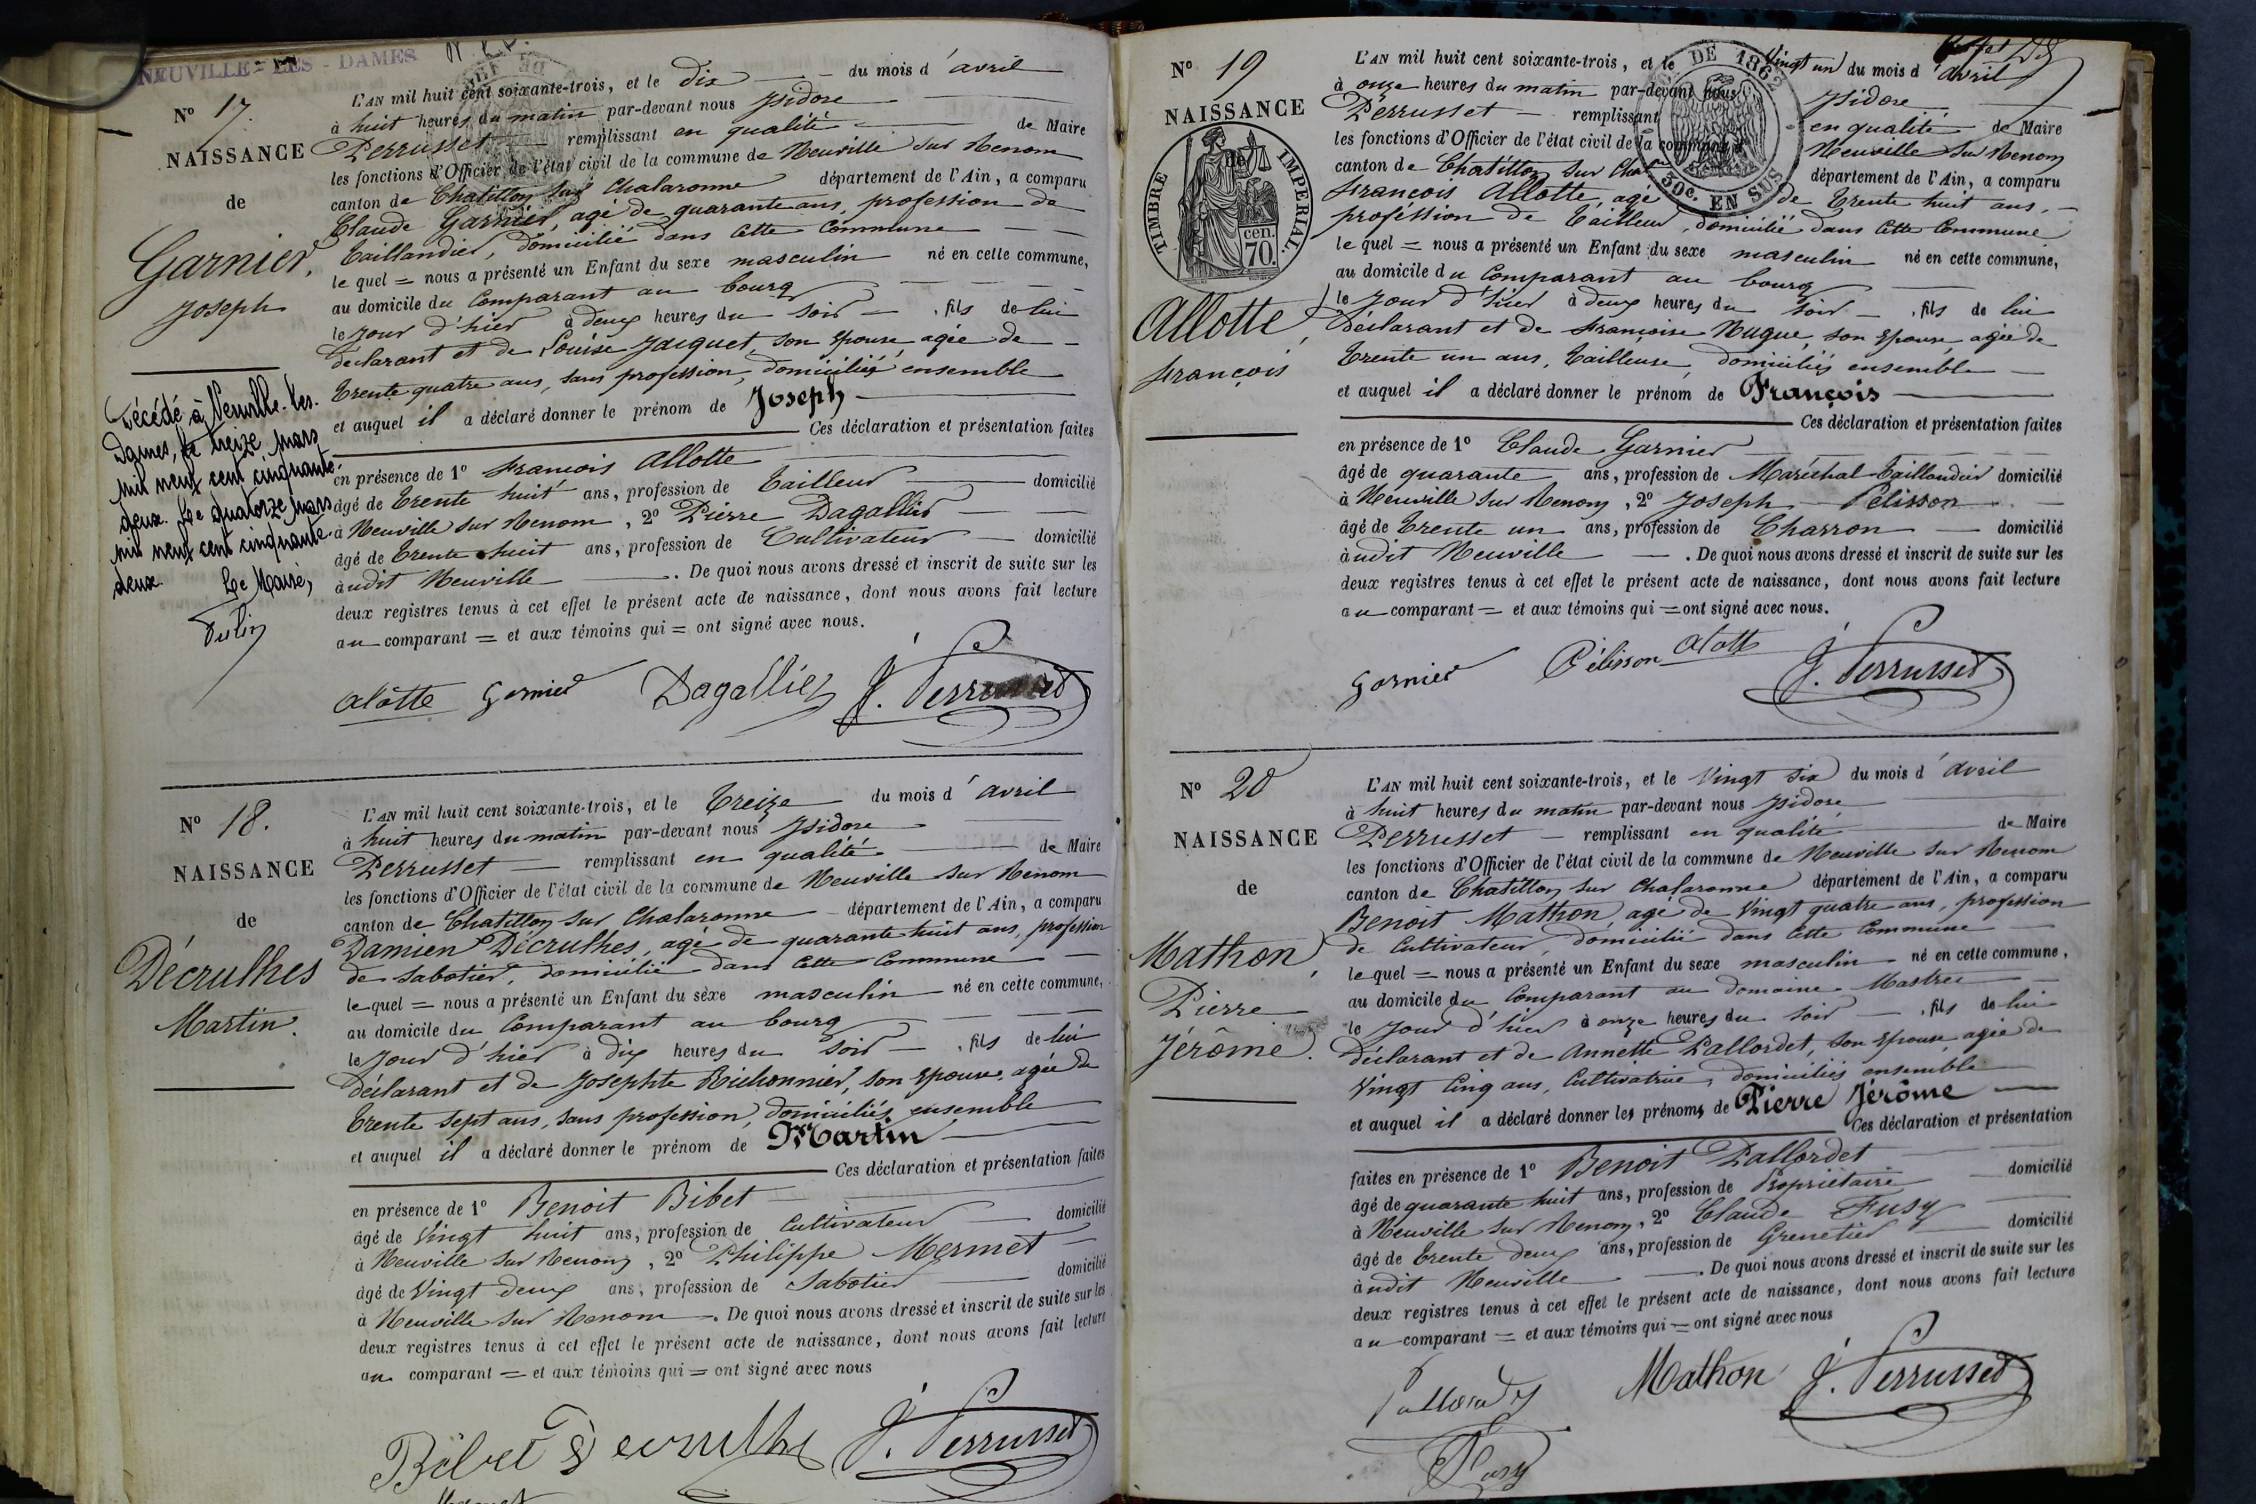 NEUVILLE - LES - DAMES
Nº 17.
NAISSANCE
de
Garnier,
Joseph
L'AN mil huit cent soixante-trois, et le dix du mois d'avril
à huit heures du matin par-devant nous Isidore
Perrusset remplissant en qualité de Maire
les fonctions d'Officier de l'état civil de la commune de Neuville sur Renom
canton de Chatillon sur Chalaronne département de l'Ain, a comparu
Claude Garnier, agé de quarante ans, profession de
Taillandier, domicilié dans cette Commune
le quel = nous a présenté un Enfant du sexe masculin né en cette commune,
au domicile du Comparant au bourg
le jour d'hier à deux heures du soir, fils de lui
déclarant et de Louise Jacquet, son épouse, agée de
trente quatre ans, sans profession, domiciliés ensemble
et auquel il a déclaré donner le prénom de Joseph
Ces déclaration et présentation faites
en présence de 1º François Allotte
âgé de trente huit ans, profession de Tailleur domicilié
à Neuville sur Renom, 2º Pierre Dagallier
âgé de trente huit ans, profession de Cultivateur domicilié
àudit Neuville. De quoi nous avons dressé et inscrit de suite sur les
deux registres tenus à cet effet le présent acte de naissance, dont nous avons fait lecture
au comparant = et aux témoins qui = ont signé avec nous.
alotte Garnier Dagallier J. Perrusset
Décédé à Neuville-les-
Dames, le treize mars
mil neuf cent cinquante-
deux. Le quatorze mars
mil neuf cent cinquante-
deux.
Le Maire,
Nº 18.
NAISSANCE
de
Décruthes
Martin.
L'AN mil huit cent soixante-trois, et le treize du mois d'avril
à huit heures du matin par-devant nous Isidore
Perrusset remplissant en qualité de Maire
les fonctions d'Officier de l'état civil de la commune de Neuville sur Renom
canton de Chatillon sur Chalaronne département de l'Ain, a comparu
Damien Décruthes, agé de quarante huit ans, profession
de sabotier, domicilié dans cette Commune
le quel = nous a présenté un Enfant du sèxe masculin né en cette commune,
au domicile du Comparant au bourg
le jour d'hier à dix heures du soir, fils de lui
déclarant et de Josephte Bichonnier, son épouse, agée de
trente sept ans, sans profession, domiciliés ensemble
et auquel il a déclaré donner le prénom de Martin
Ces déclaration et présentation faites
en présence de 1º Benoit Bibet
âgé de vingt huit ans, profession de Cultivateur domicilié
à Neuville sur Renom, 2º Philippe Mermet
âgé de vingt deux ans, profession de Sabotier domicilié
à Neuville sur Renom. De quoi nous avons dressé et inscrit de suite sur les
deux registres tenus à cet effet le présent acte de naissance, dont nous avons fait lecture
au comparant = et aux témoins qui = ont signé avec nous
Bibet Decruthe J. Perrusset
Nº 19
NAISSANCE
de
TIMBRE IMPERIAL.
70. cen.
Allotte,
François
DE 1862
30c. EN SUS
L'AN mil huit cent soixante-trois, et le Vingt un du mois d'avril
à onze heures du matin par-devant nous Isidore
Perrusset remplissant en qualité de Maire
les fonctions d'Officier de l'état civil de la commune de Neuville sur Renom
canton de Chatillon sur Cha département de l'Ain, a comparu
François Allotte, agé de trente huit ans,
proféssion de Tailleur, domicilié dans cette Commune
le quel = nous a présenté un Enfant du sexe masculin né en cette commune,
au domicile du Comparant au bourg
le jour d'hier à deux heures du soir, fils de lui
déclarant et de Françoise Nugue, son épouse, agée de
trente un ans, tailleuse, domiciliés ensemble
et auquel il a déclaré donner le prénom de François
Ces déclaration et présentation faites
en présence de 1º Claude Garnier
âgé de quarante ans, profession de Maréchal-Taillandier domicilié
à Neuville sur Renom, 2º Joseph Pelisson
âgé de trente un ans, profession de Charron domicilié
àudit Neuville. De quoi nous avons dressé et inscrit de suite sur les
deux registres tenus à cet effet le présent acte de naissance, dont nous avons fait lecture
au comparant = et aux témoins qui = ont signé avec nous.
Garnier Pélisson alotte J. Perrusset
Nº 20
NAISSANCE
de
Mathon,
Pierre
Jérôme.
L'AN mil huit cent soixante-trois, et le vingt six du mois d'avril
à huit heures du matin par-devant nous Isidore
Perrusset remplissant en qualité de Maire
les fonctions d'Officier de l'état civil de la commune de Neuville sur Renom
canton de Chatillon sur Chalaronne département de l'Ain, a comparu
Benoit Mathon, agé de vingt quatre ans, profession
de Cultivateur, domicilié dans cette Commune
le quel = nous a présenté un Enfant du sexe masculin né en cette commune,
au domicile du Comparant au domaine Mastrec
le jour d'hier à onze heures du soir, fils de lui
déclarant et de Annette Pallordet, son épouse agée de
vingt cinq ans, Cultivatrice, domiciliés ensemble
et auquel il a déclaré donner les prénoms de Pierre Jérôme
Ces déclaration et présentation
faites en présence de 1º Benoit Pallordet
âgé de quarante huit ans, profession de Propriétaire domicilié
à Neuville sur Renom, 2º Claude Fusy
âgé de trente deux ans, profession de Grenetier domicilié
àudit Neuville. De quoi nous avons dressé et inscrit de suite sur les
deux registres tenus à cet effet le présent acte de naissance, dont nous avons fait lecture
au comparant = et aux témoins qui = ont signé avec nous
Mathon J. Perrusset